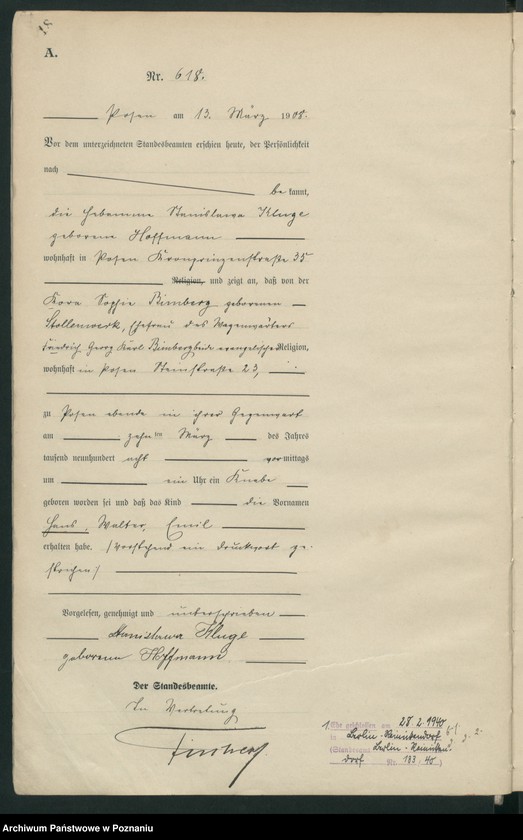 18
A.
Nr. 618.
Posen am 13. März 1908.
Vor dem unterzeichneten Standesbeamten erschien heute, der Persönlichkeit
nach
bekannt,
die Hebamme Stanislawa Kluge
geborene Hoffmann
wohnhaft in Posen Kronprinzenstraße 35
Religion, und zeigt an, daß von der
Sophie Bimberg geborenen
Stollenwerk, Ehefrau des Wagenwärters
Georg Karl Bimberg beide evangelischer Religion,
wohnhaft in Posen Steinstraße 23,
zu Posen ebenda in ihrer Gegenwart
am zehnten März des Jahres
tausend neunhundert acht vormittags
um ein Uhr ein Knabe
geboren worden sei und daß das Kind die Vornamen
Hans, Walter, Emil
erhalten habe. (Vorstehend ein Druckwort ge-
strichen)
Vorgelesen, genehmigt und unterschrieben
Stanislawa Kluge
geborene Hoffmann
Der Standesbeamte.
In Vertretung
1, Ehe geschlossen am 28.2.1940
in Berlin-Reinickendorf
(Standesamt Berlin-Reinicken-
dorf Nr. 183.40)
Archiwum Państwowe w Poznaniu